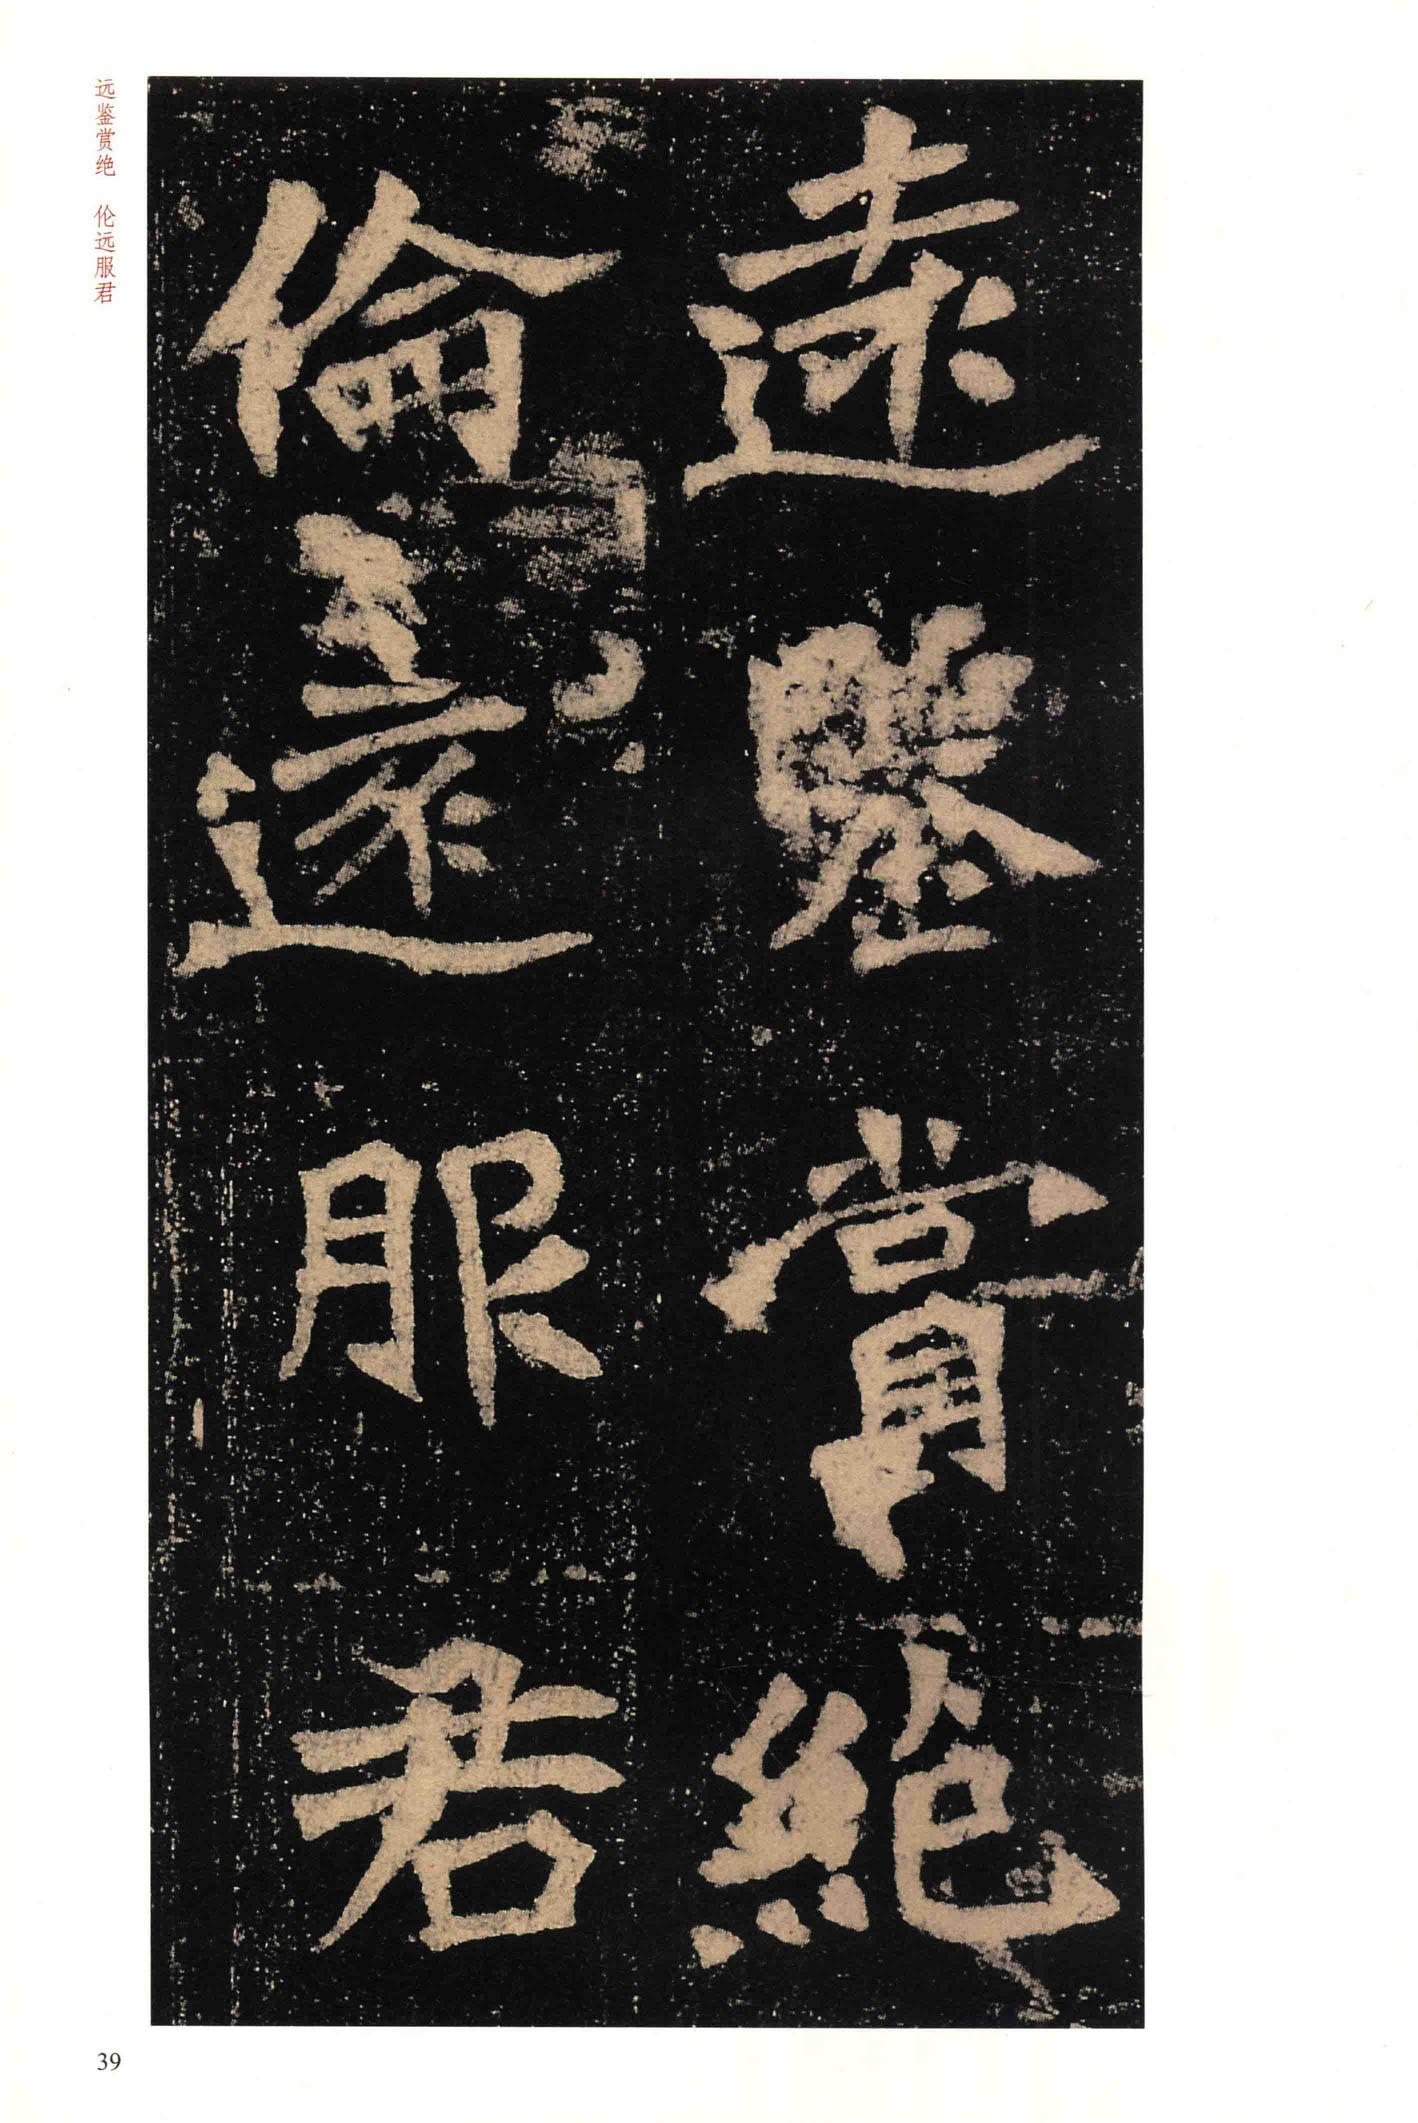 遠鑒賞絕
倫遠服君
远鉴赏绝 伦远服君
39